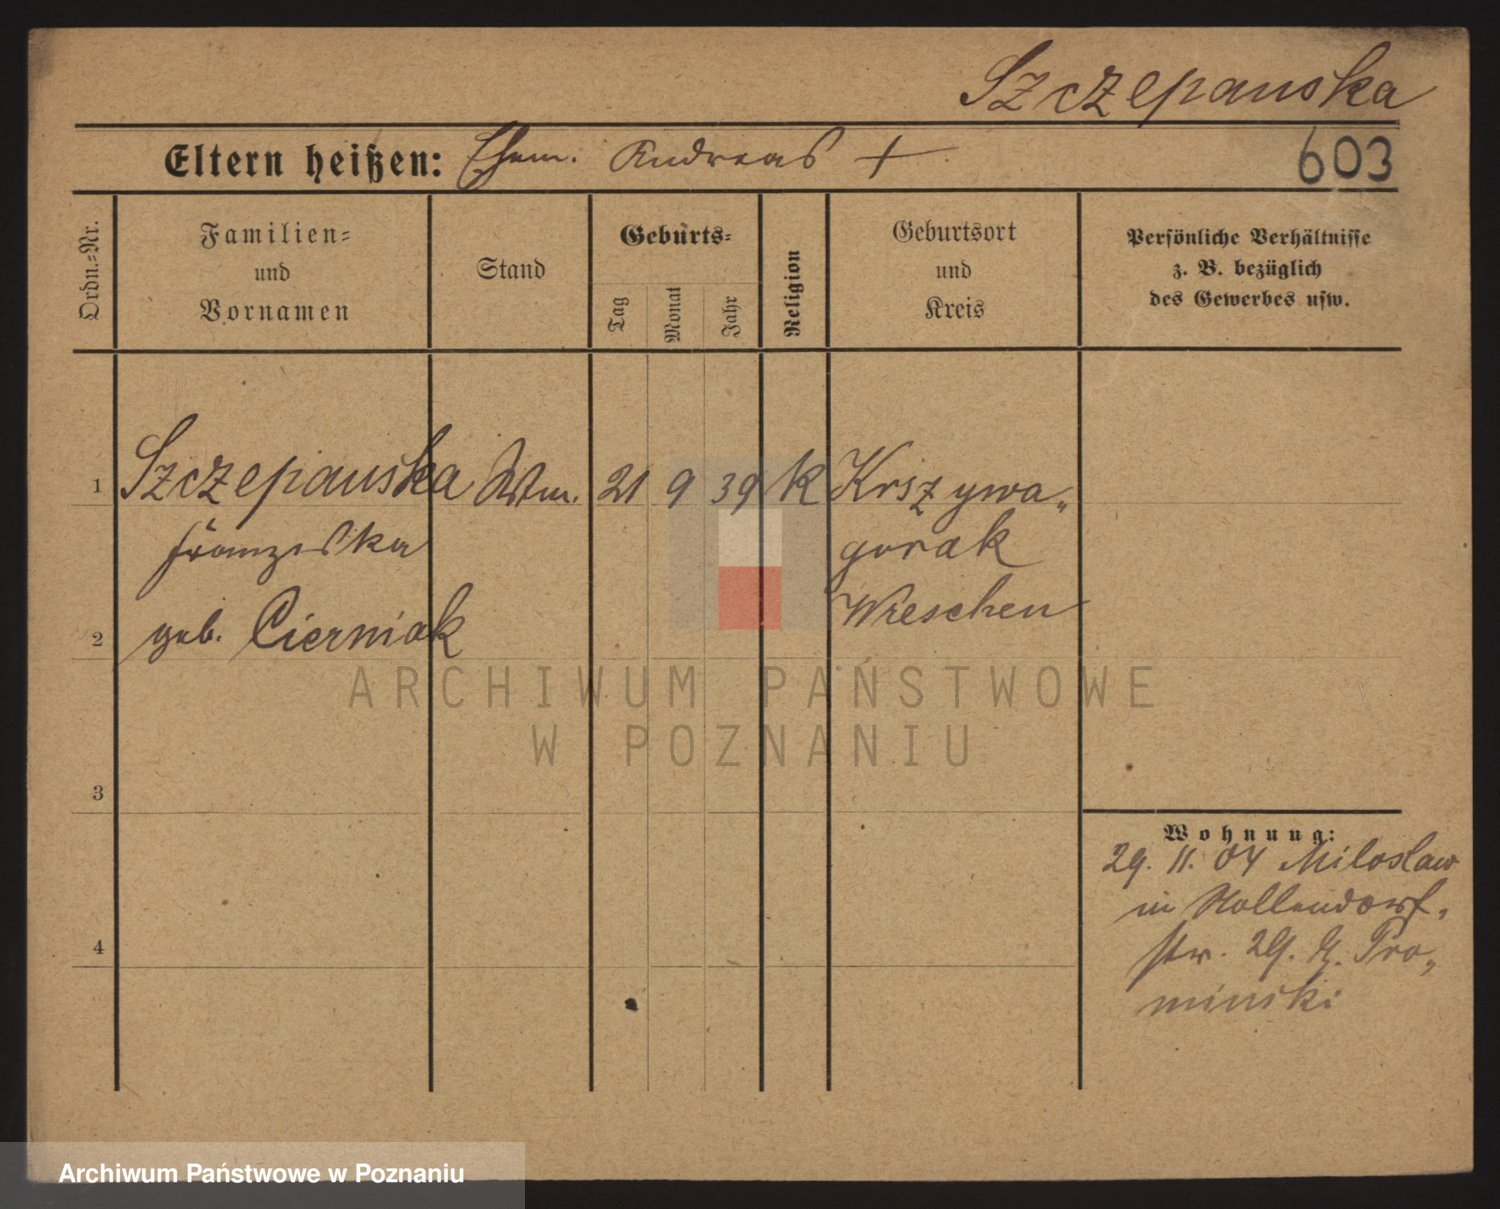 Szczepanska
Eltern heißen: Ehem. Andreas +
603
Ordn.=Nr.
Familien=
und
Vornamen
Stand
Geburts=
Tag
Monat
Jahr
Religion
Geburtsort
und
Kreis
Persönliche Verhältnisse
z. B. bezüglich
des Gewerbes usw.
1 Szczepanska Wtw. 21 9 39 k Krszywa„
Franziska gorak
2 geb. Cierniak Wreschen
3
4
Wohnung:
29. 11. 04 Miloslaw
in Nollendorf„
str. 29. b. Pro„
minski
ARCHIWUM PAŃSTWOWE
W POZNANIU
Archiwum Państwowe w Poznaniu